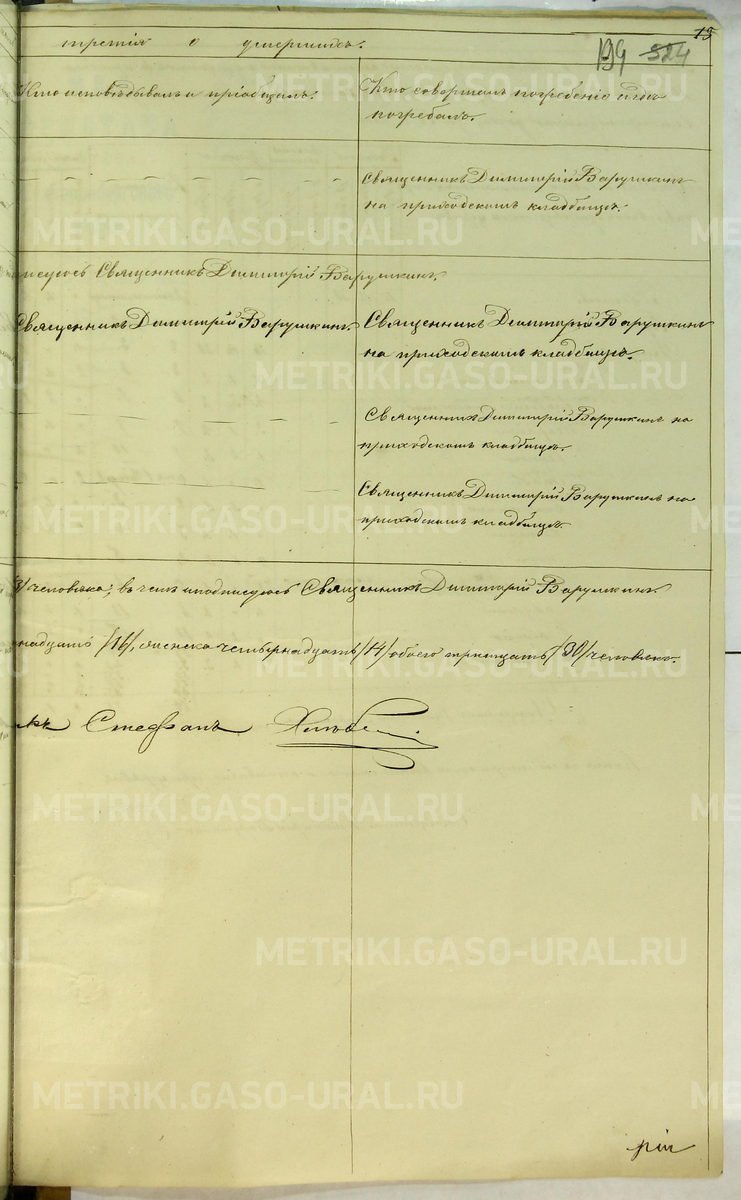 15
третія о умершихъ.
199 524
Кто исповѣдывалъ и пріобщалъ.
Кто совершалъ погребеніе и гдѣ
погребалъ.
Священникъ Димитрій Варушкинъ
на приходскомъ кладбищѣ.
Священникъ Димитрій Варушкинъ.
Священникъ Димитрій Варушкинъ.
Священникъ Димитрій Варушкинъ
на приходскомъ кладбищѣ.
Священникъ Димитрій Варушкинъ на
приходскомъ кладбищѣ.
Священникъ Димитрій Варушкинъ на
приходскомъ кладбищѣ.
/3/ человѣка; въ чемъ и подписуюсь Священникъ Димитрій Варушкинъ.
надцать /16/, женска четырнадцать /14/ обоего тридцать /30/ человѣкъ.
Стефанъ
METRIKI.GASO-URAL.RU